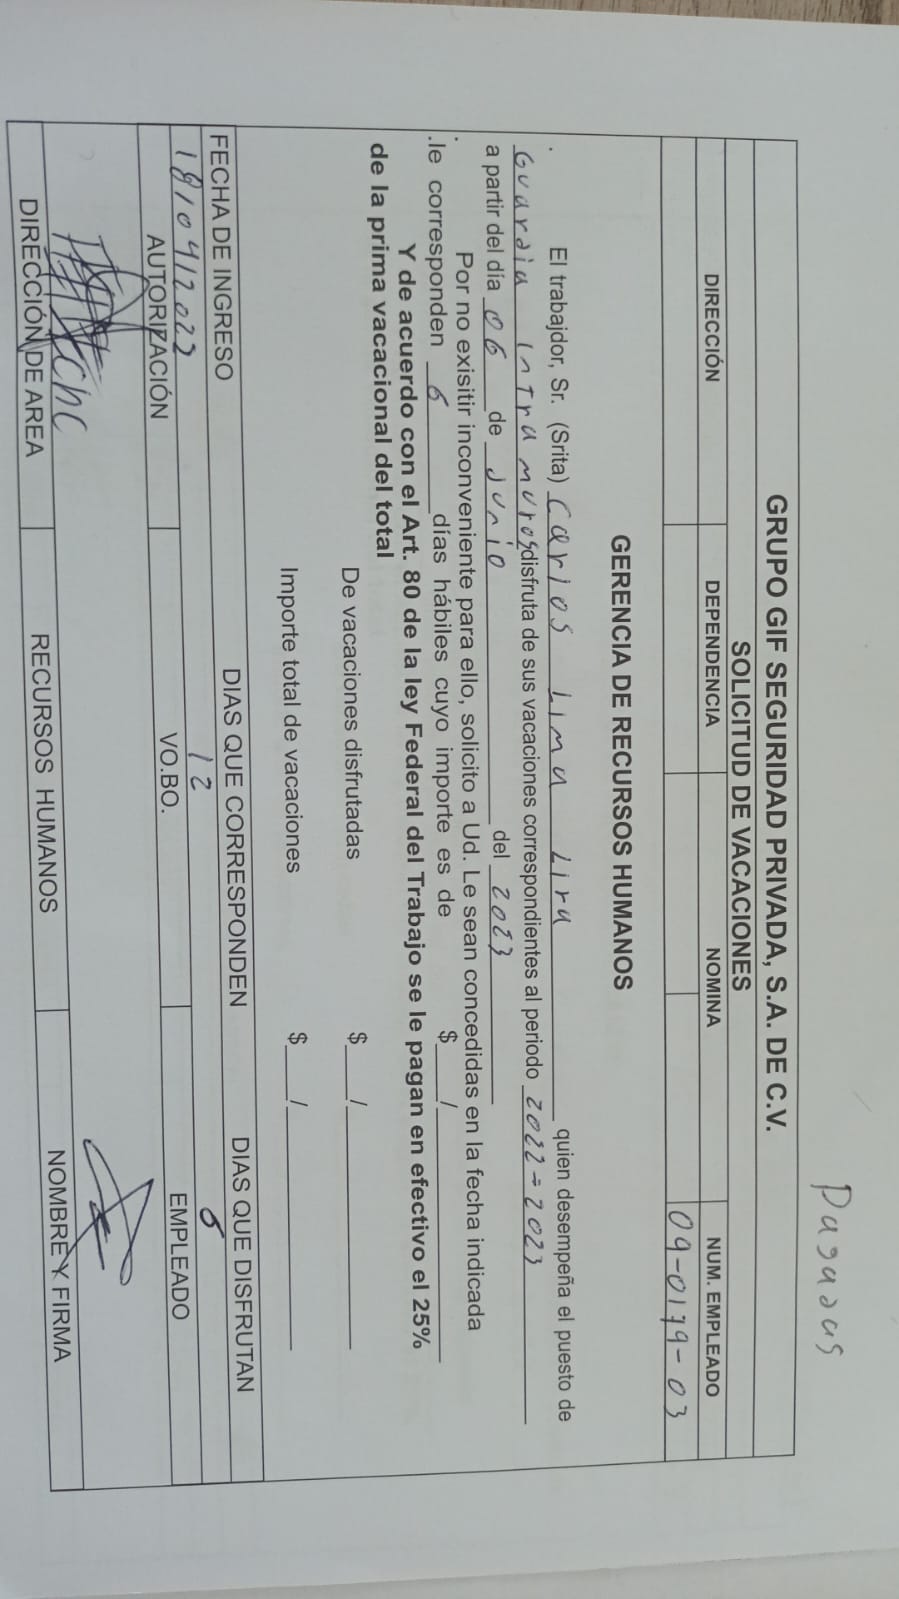 Pagadas
GRUPO GIF SEGURIDAD PRIVADA, S.A. DE C.V.
SOLICITUD DE VACACIONES
DIRECCIÓN DEPENDENCIA NOMINA NUM. EMPLEADO
09-0179-03
GERENCIA DE RECURSOS HUMANOS
El trabajdor, Sr. (Srita) Carlos Lima Lira quien desempeña el puesto de
Guardia intramuros disfruta de sus vacaciones correspondientes al periodo 2022-2023
a partir del día 06 de Junio del 2023
Por no exisitir inconveniente para ello, solicito a Ud. Le sean concedidas en la fecha indicada
.le corresponden 6 días hábiles cuyo importe es de $ /
Y de acuerdo con el Art. 80 de la ley Federal del Trabajo se le pagan en efectivo el 25%
de la prima vacacional del total
De vacaciones disfrutadas $ /
Importe total de vacaciones $ /
FECHA DE INGRESO DIAS QUE CORRESPONDEN DIAS QUE DISFRUTAN
18/04/2022 12 6
AUTORIZACIÓN VO.BO. EMPLEADO
DIRECCIÓN DE AREA RECURSOS HUMANOS NOMBRE Y FIRMA